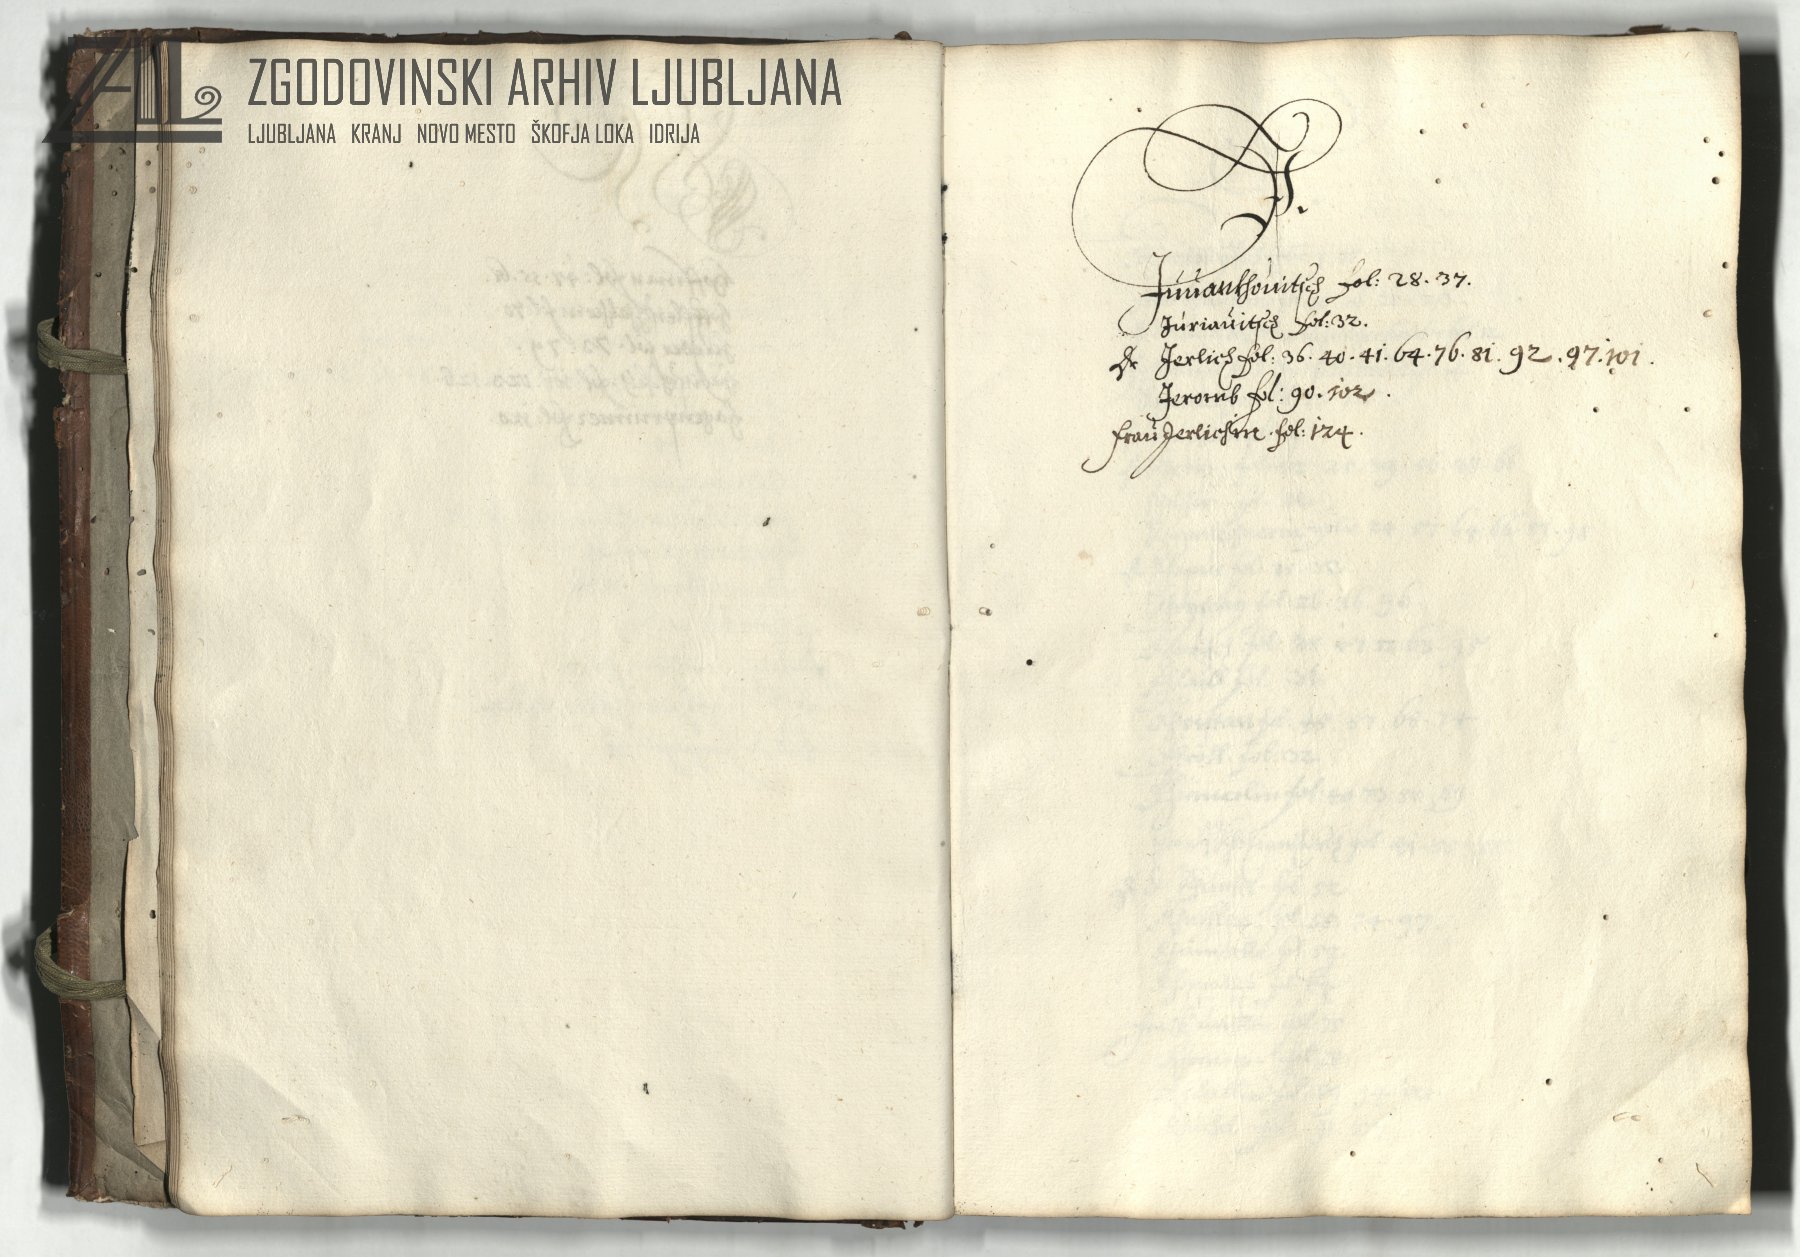 ZGODOVINSKI ARHIV LJUBLJANA
LJUBLJANA KRANJ NOVO MESTO ŠKOFJA LOKA IDRIJA
J.
Juuankhouitsch fol: 28. 37.
Juriauitsch fol: 32.
Jerlich fol: 36. 40. 41. 64. 76. 81. 92. 97. 101.
Jeromb fol: 90. 102.
Frau Jerlichin. fol: 124.